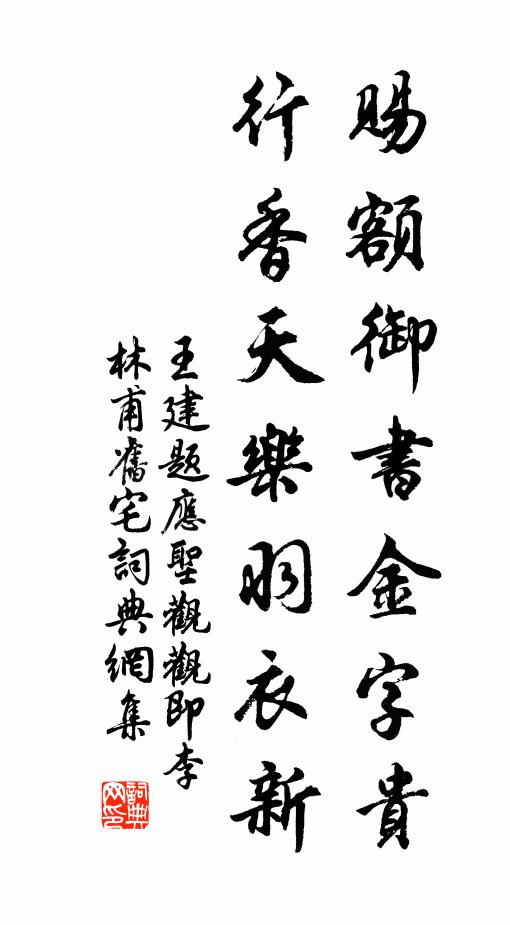 賜額御書金字貴
行香天樂羽衣新
王建題應聖觀觀即李
林甫舊宅詞典網集
詞典网印